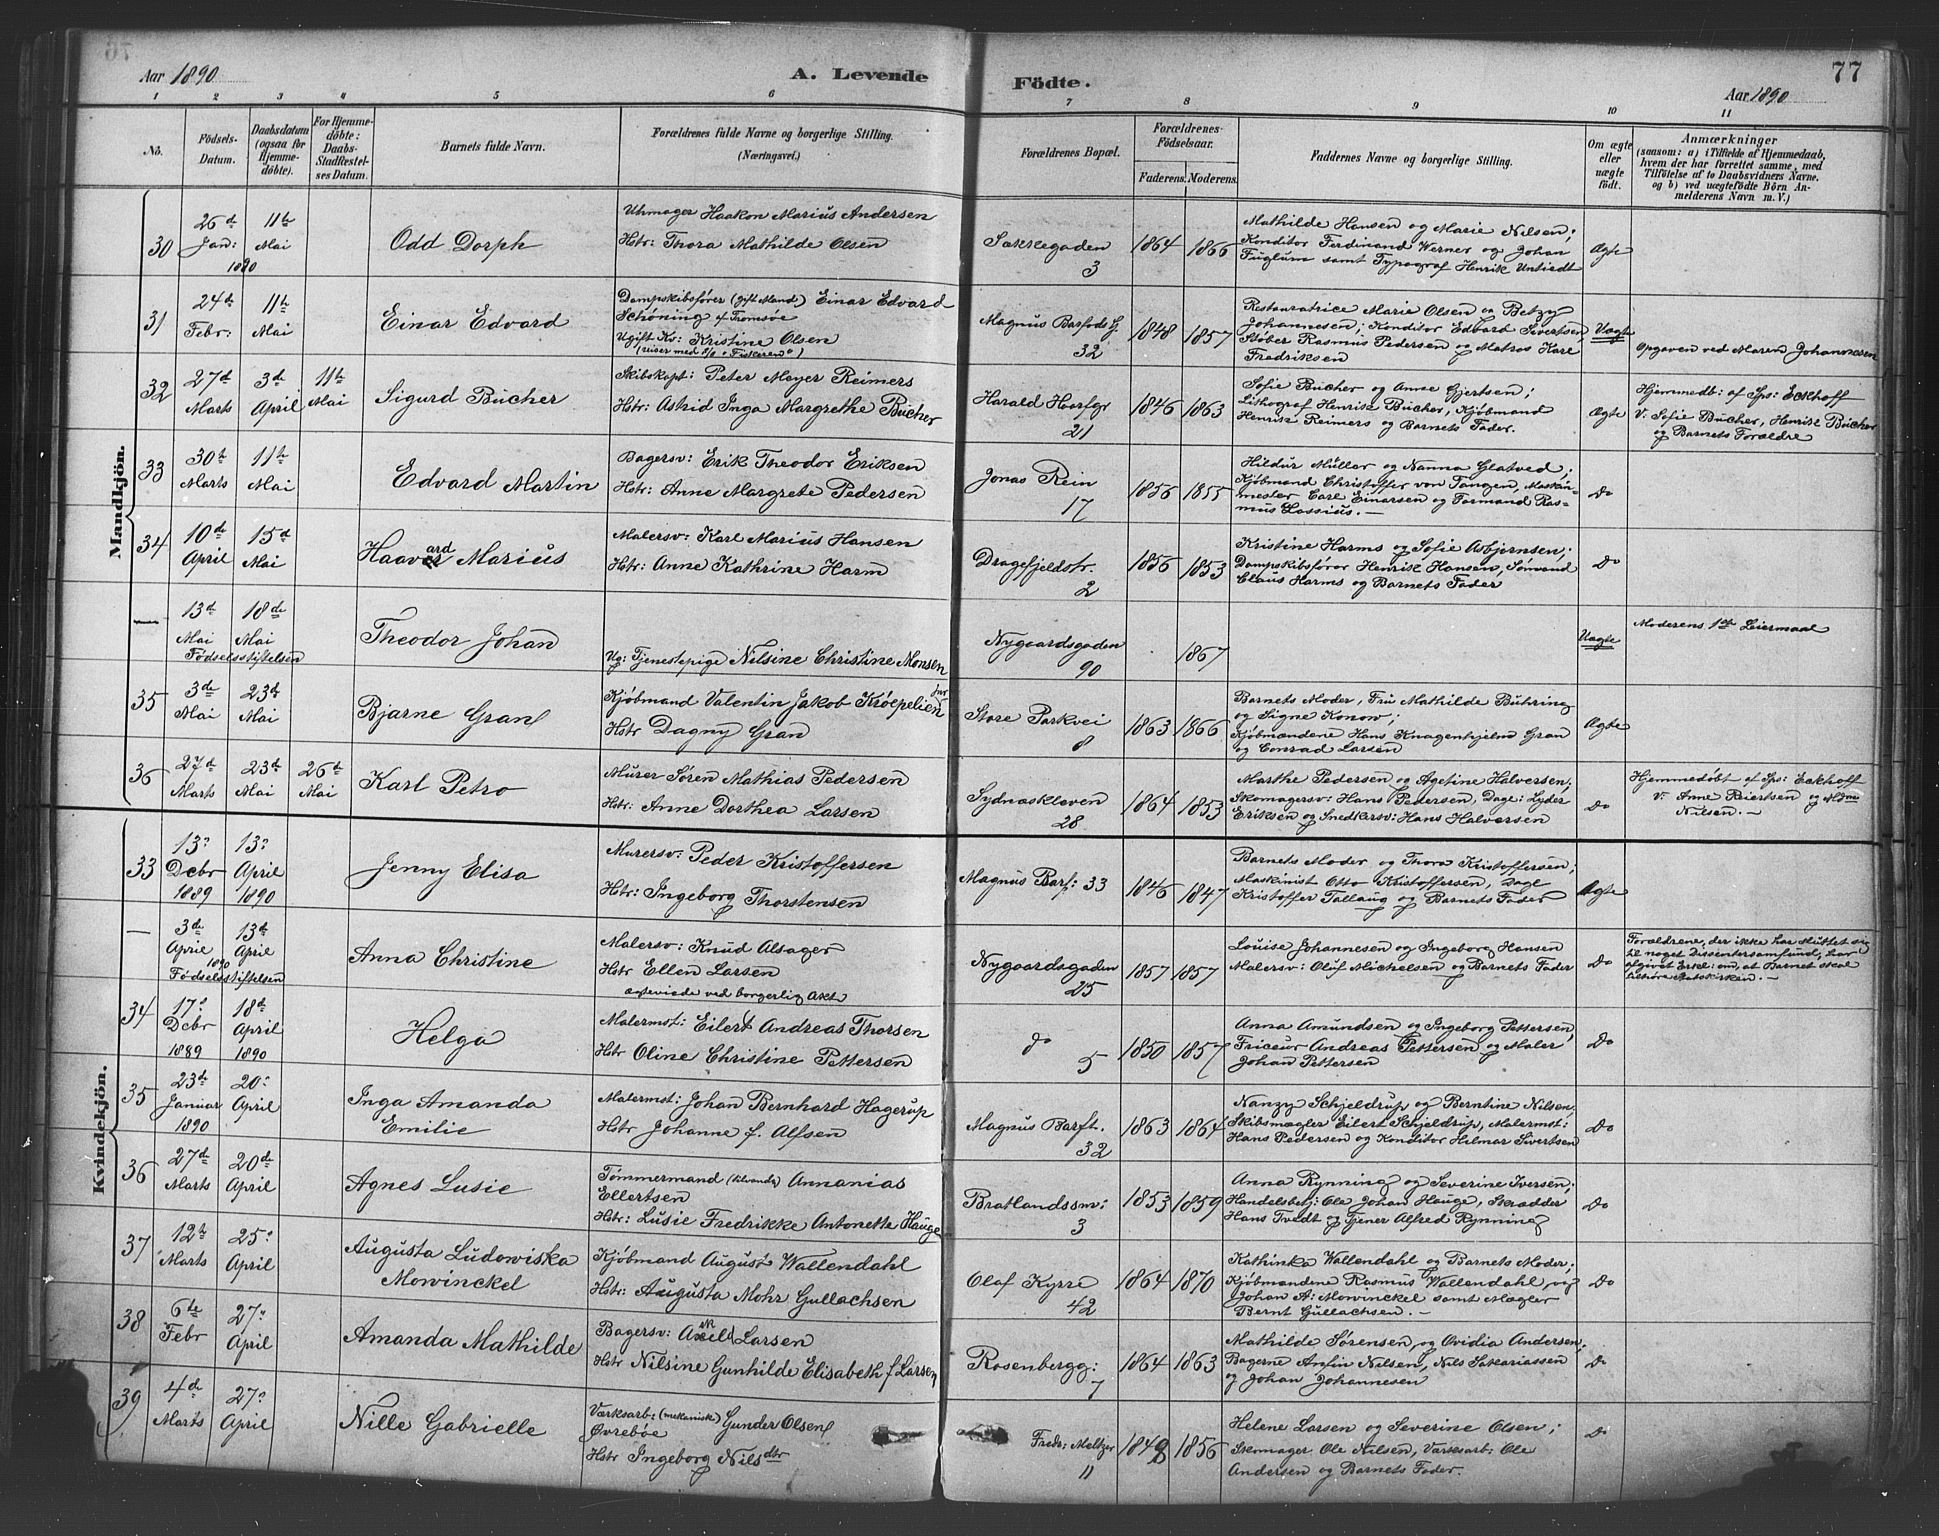 Aar 1890
A. Levende
Födte.
77
Aar 1890
1 2 3 4 5 6 7 8 9 10 11
No.
Födsels-Datum.
Daabsdatum (ogsaa for Hjemmedöbte).
For Hjemmedöbte: Daabs-Stadfæstelses Datum.
Barnets fulde Navn.
Forældrenes fulde Navne og borgerlige Stilling.
(Næringsvei.)
Forældrenes Bopæl.
Forældrenes Födselsaar.
Faderens. Moderens.
Faddernes Navne og borgerlige Stilling.
Om ægte eller uægte födt.
Anmærkninger
(saasom: a) i Tilfælde af Hjemmedaab,
hvem der har forrettet samme, med
Tilföielse af to Daabsvidners Navne.
og b) ved uægtefödte Börn Anmelderens Navn m. V.)
Mandkjön.
30
26d Jan: 1890
11te Mai
Odd Dorph
Uhmager Haakon Marius Andersen
Hstr: Thora Mathilde Olsen
Sækkegaden 3
1864 1866
Mathilde Hansen og Marie Nilsen;
Konditor Ferdinand Werner og Johan
Fuglum samt Typograf Henrik Untiedt
Ægte
31
24de Febr:
11te Mai
Einar Edvard
Dampskibsfører (gift Mand) Einar Edvard
Schøning af Tromsøe
Ugift Kv: Kristine Olsen
(reiser med S/s "Fiskeren")
Magnus Barfods G. 32
1848 1857
Restauratrice Marie Olsen og Betzy
Johannesen; Konditor Edvard Sivertsen,
Støber Rasmus Pedersen og Matros Karl
Fredriksen
Uægte
Opgaven ved Maren Johannesen
32
27d Marts
3de April
11te Mai
Sigurd Bücher
Skibskapt: Peter Meyer Reimers
Hstr: Astrid Inga Margrethe Bücher
Harald Haarfgr 21
1846 1863
Sofie Bücher og Anne Gjertsen;
Lithograf Henrik Bücher, Kjøbmand
Henrik Reimers og Barnets Fader.
Ægte
Hjemmedb: af Sps: Eckhoff
V: Sofie Bücher, Henrik Bücher
og Barnets Forældre
33
30te Marts
11te Mai
Edvard Martin
Bagersv: Erik Theodor Eriksen
Hstr: Anne Margrete Pedersen
Jonas Rein 17
1856 1855
Hildur Müller og Nanna Glatved;
Kjøbmand Christoffer von Tangen, Maskin-
mester Carl Einarsen og Formand Ras-
mus Lossius.—
Do
34
10de April
15d Mai
Haavard Marius
Malersv: Karl Marius Hansen
Hstr: Anne Kathrine Harm
Dragefjeldstr. 2
1856 1853
Kristine Harms og Sofie Asbjørnsen;
Dampskibsfører Henrik Hansen, Sømand
Claus Harms og Barnets Fader
Do
—
13d Mai
18de Mai
Fødselsstiftelsen
Theodor Johan
Ug: Tjenestepige Nilsine Christine Monsen
Nygaardsgaden 90
1867
Uægte
Moderens 1ste Leiermaal
35
3de Mai
23d Mai
Bjarne Gran
Kjøbmand Valentin Jakob Krøepelien jnr
Hstr Dagny Gran
Store Parkvei 8
1863 1866
Barnets Moder, Fru Mathilde Bühring
og Signe Konow;
Kjøbmændene Hans Knagenhjelm Gran
og Conrad Larsen
Ægte
36
27d Marts
23d Mai
26de Mai
Karl Petro
Murer Søren Mathias Pedersen
Hstr: Anne Dorthea Larsen
Sydneskleven 28
1864 1853
Marthe Pedersen og Agetine Halversen;
Skomagersv: Hans Pedersen, Dagl: Lyder
Eriksen og Snedkersv: Hans Halversen
Do
Hjemmedøbt af Sps: Eckhoff
V: Anne Reiertsen og Mdme
Nilsen.—
Kvindekjön.
33
13: Decbr 1889
13: April 1890
Jenny Elisa
Murersv: Peder Kristoffersen
Hstr: Ingeborg Thorstensen
Magnus Barf: 33
1846 1847
Barnets Moder og Thora Kristoffersen;
Maskinist Otto Kristoffersen, Dagl
Kristoffer Tallaug og Barnets Fader
Ægte
—
3de April 1890
13d April
Fødselsstiftelsen
Anna Christine
Malersv: Knud Alsager
Hstr Ellen Larsen
ægteviede ved borgerlig Akt
Nygaardsgaden 25
1857 1857
Louise Johannesen og Ingeborg Hansen
Malersv: Oluf Michelsen og Barnets Fader
Do
Forældrene, der ikke har sluttet sig
til noget Dissentersamfund, har
afgivet Erkl: om, at Barnet skal
tilhøre Statskirken.—
34
17: Decbr 1889
18d April 1890
Helga
Malermst: Eilert Andreas Thorsen
Hstr Oline Christine Pettersen
do 5
1850 1857
Anna Amundsen og Ingeborg Pettersen,
Friceur Andreas Pettersen og Maler
Johan Pettersen
Do
35
23d Januar 1890
20: April
Inga Amanda
Emilie
Malermst: Johan Bernhard Hagerup
Hstr Johanne f. Alfsen
Magnus Barft. 32
1863 1864
Nanzy Schjeldrup og Berntine Nilsen,
Skibsmægler Eilert Schjeldrup, Malermst:
Hans Pedersen og Konditor Hilmar Sivertsen
Do
36
27de Marts
20de April
Agnes Lusie
Tømmermand Annanias
Ellertsen
Hstr: Lusie Fredrikke Antonette Hauge
Bratlandssm: 3
1853 1859
Anna Rynning og Severine Iversen;
Handelsbetj: Ole Johan Hauge, Skrædder
Hans Tvedt og Tjener Alfred Rynning
Do
37
12te Marts
25: April
Augusta Ludowiska
Mowinckel
Kjøbmand August Wallendahl
Hstr: Augusta Mohr Gullachsen
Olaf Kyrre 42
1864 1870
Kathinka Wallendahl og Barnets Moder;
Kjøbmændene Rasmus Wallendahl og
Johan A: Mowinckel samt Mægler
Bernt Gullachsen.—
Do
38
6te Febr
27: April
Amanda Mathilde
Bagersv: Axel Larsen
Hstr Nilsine Gunhilde Elisabeth f Larsen
Rosenbergg: 7
1864 1863
Mathilde Sørensen og Ovidia Andersen,
Bagerne Anfin Nilsen, Nils Sakariassen
og Johan Johannesen
Do
39
4de Marts
27: April
Nille Gabrielle
Værksarb: (mekaniske) Gunder Olsen
Øvrebøe
Hstr Ingeborg Nilsdtr
Fredr: Meltzer 11
1848 1856
Helene Larsen og Severine Olsen;
Skomager Ole Nilsen, Værksarb: Ole
Andersen og Barnets Fader.
Do